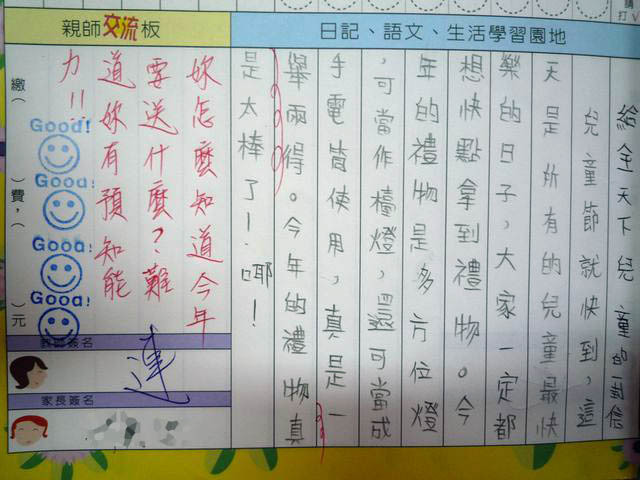 親師交流板
日記、語文、生活學習園地
請打V
給全天下兒童的一封信
兒童節就快到,這
天是所有的兒童最快
樂的日子,大家一定都
想快點拿到禮物。今
年的禮物是多方位燈
,可當作檯燈,還可當成
手電筒使用,真是一
舉兩得。今年的禮物真
是太棒了!耶!
妳怎麼知道今年
要送什麼?難
道妳有預知能
力!!
繳( )費,( )元
Good!
Good!
Good!
Good!
教師簽名
連
家長簽名